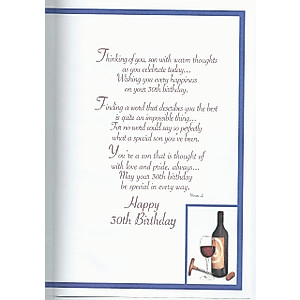 Thinking of you, son with warm thoughts
as you celebrate today...
Wishing you every happiness
on your 30th birthday.
Finding a word that describes you the best
is quite an impossible thing...
For no word could say so perfectly
what a special son you've been.
You're a son that is thought of
with love and pride, always...
May your 30th birthday
be special in every way.
Happy
30th Birthday